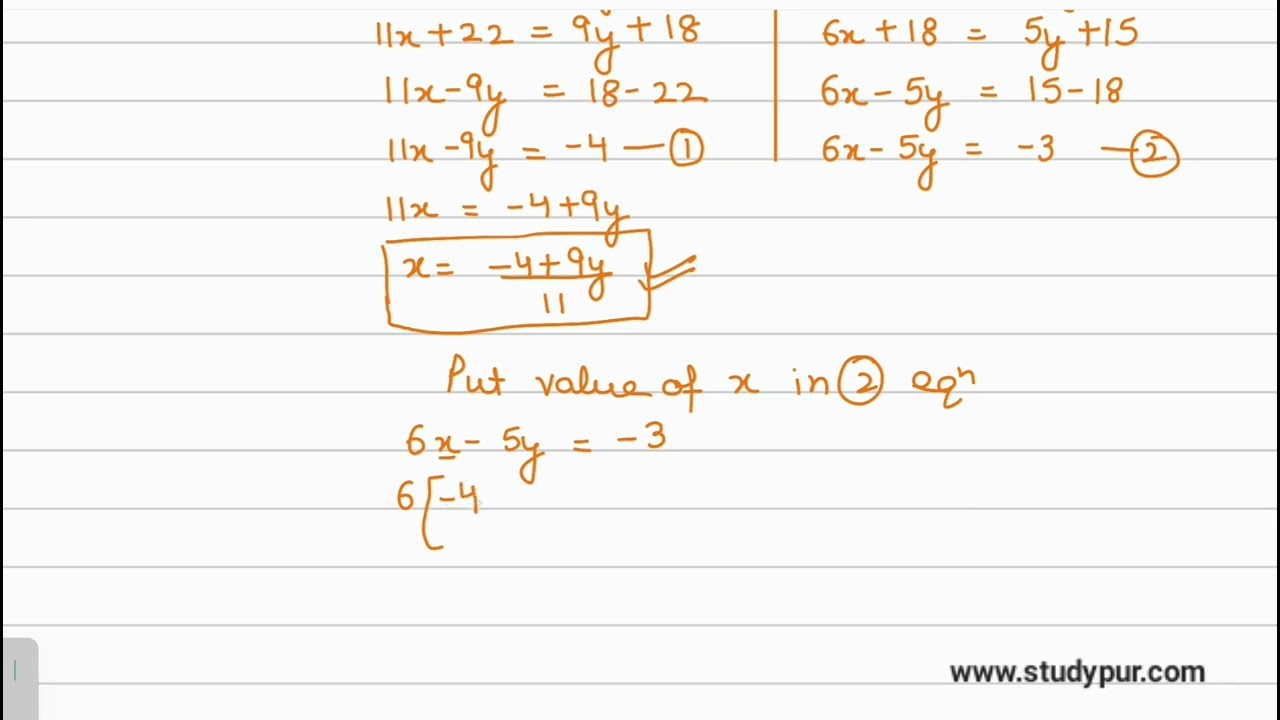 11x + 22 = 9y + 18
11x - 9y = 18 - 22
11x - 9y = -4 — ①
11x = -4 + 9y
x = -4 + 9y
11
6x + 18 = 5y + 15
6x - 5y = 15 - 18
6x - 5y = -3 — ②
Put value of x in ② eqⁿ
6x - 5y = -3
6[-4
www.studypur.com